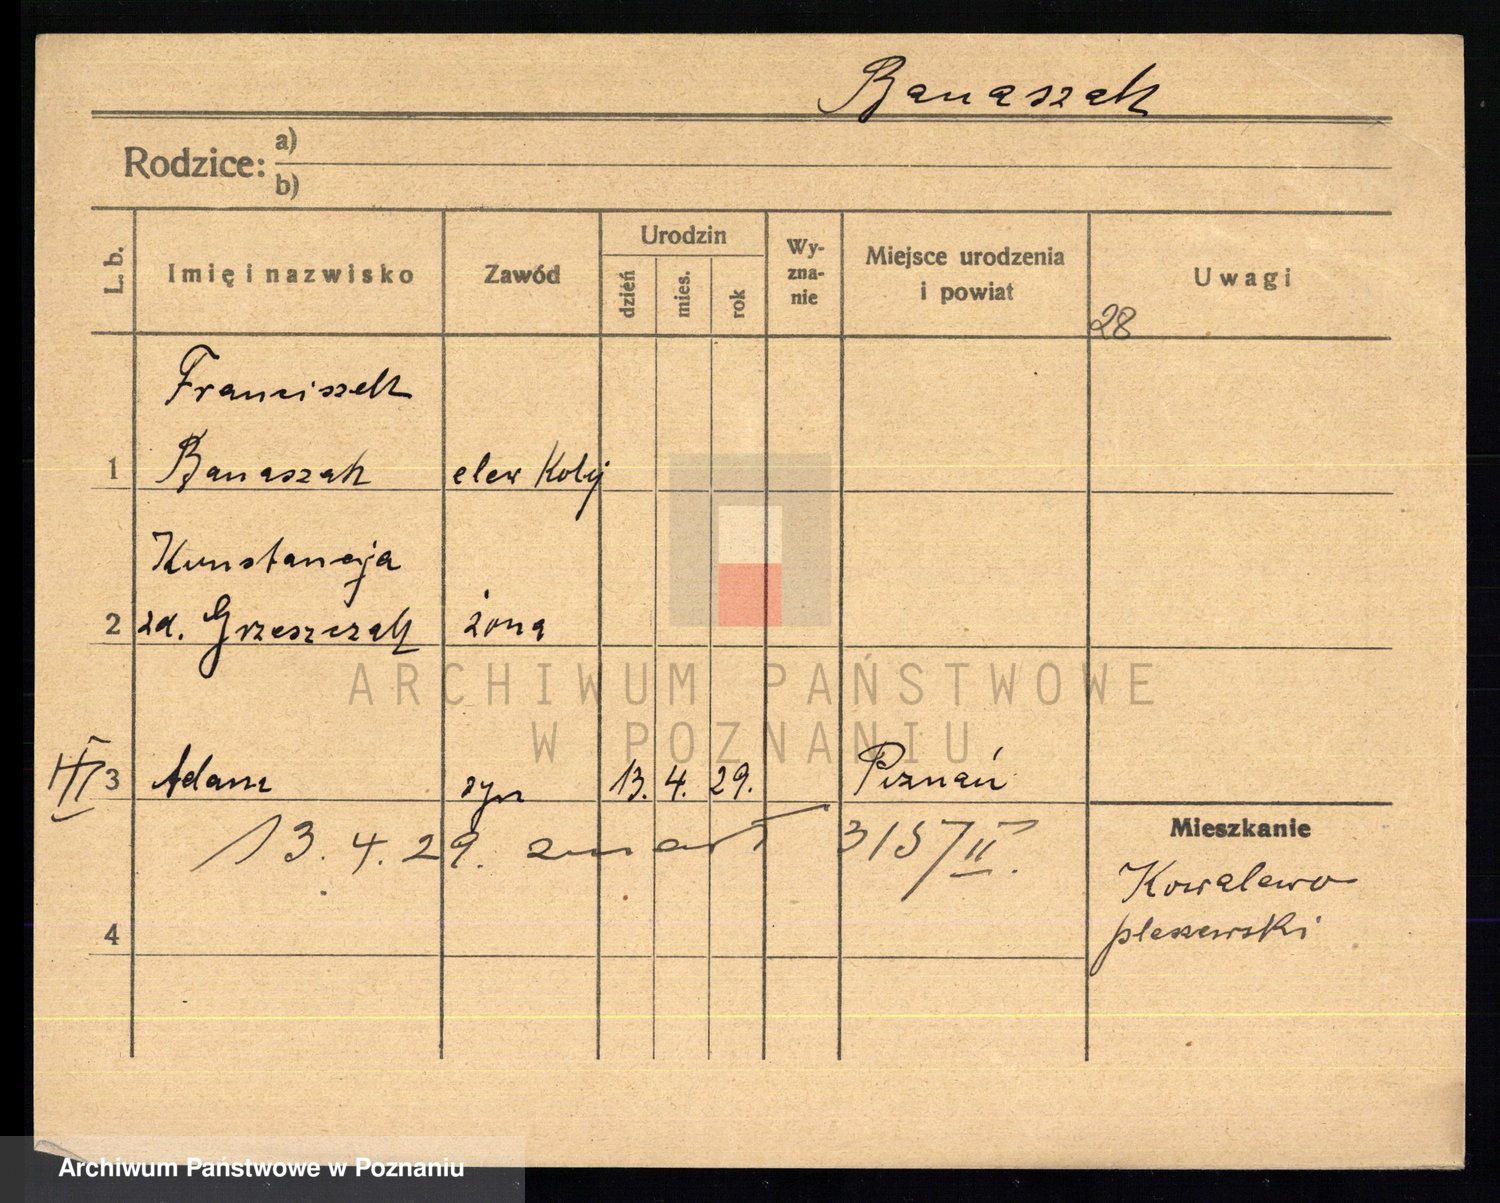 Banaszak
Rodzice: a)
b)
L. b.
Imię i nazwisko
Zawód
Urodzin
dzień
mies.
rok
Wy-
zna-
nie
Miejsce urodzenia
i powiat
Uwagi
28
Franciszek
1 Banaszak elew Kolej
Konstancja
2 zd. Grzeszczak żona
ARCHIWUM PAŃSTWOWE
W POZNANIU
3 Adam syn 13. 4. 29. Poznań
13. 4. 29. zmarł 315/II.
Mieszkanie
Kowalewo
pleszewski
4
Archiwum Państwowe w Poznaniu